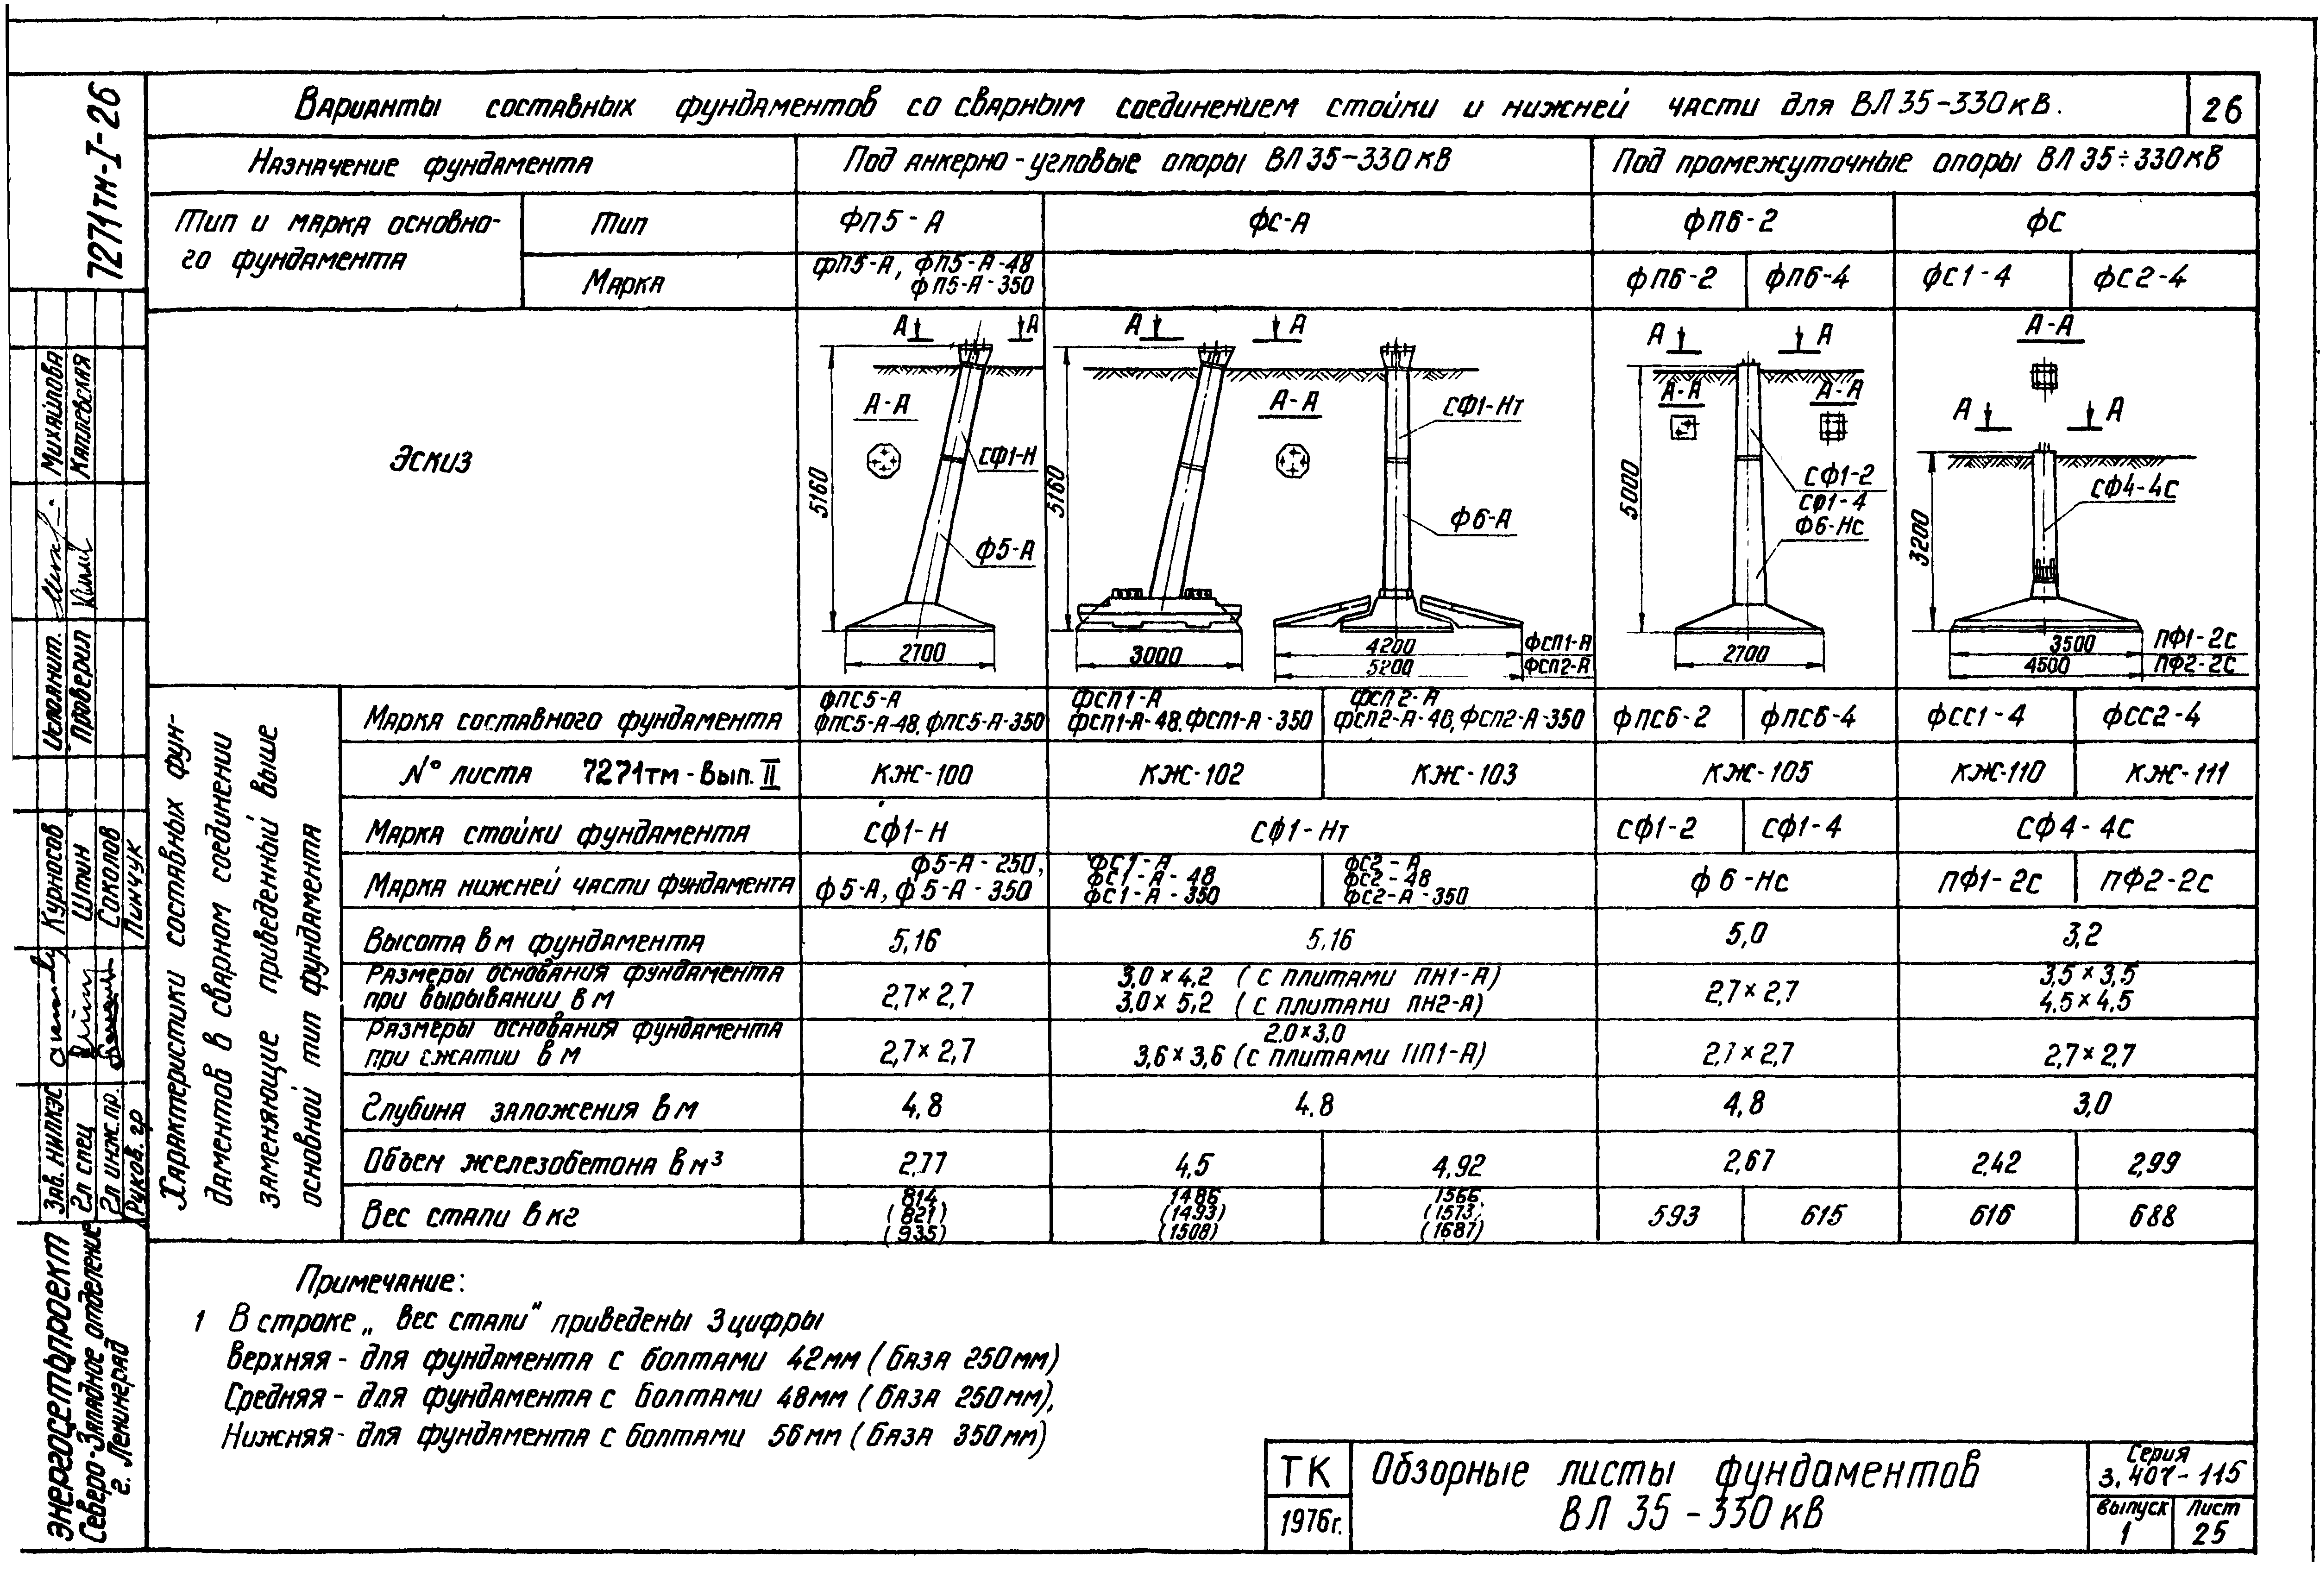 Варианты составных фундаментов со сварным соединением стойки и нижней части для ВЛ 35-330 кв.
26
7271тм-I-26
Назначение фундамента
Под анкерно-угловые опоры ВЛ 35-330 кв
Под промежуточные опоры ВЛ 35÷330 кв
Тип и марка основно-
го фундамента
Тип
ФП5-А
ФС-А
ФП6-2
ФС
Марка
ФП5-А, ФП5-А-48
ФП5-А-350
ФП6-2
ФП6-4
ФС1-4
ФС2-4
Эскиз
А А
А-А
5160
СФ1-Н
Ф5-А
2700
А А
5160
А-А
СФ1-Нт
Ф6-А
3000
4200 ФСП1-А
5200 ФСП2-А
А А
А-А
А-А
5000
СФ1-2
СФ1-4
Ф6-Нс
2700
А-А
А А
3200
СФ4-4С
3500 ПФ1-2С
4500 ПФ2-2С
Характеристики составных фун-
даментов в сварном соединении
заменяющие приведенный выше
основной тип фундамента
Марка составного фундамента
ФПС5-А
ФПС5-А-48, ФПС5-А-350
ФСП1-А
ФСП1-А-48, ФСП1-А-350
ФСП2-А
ФСП2-А-48, ФСП2-А-350
ФПС6-2
ФПС6-4
ФСС1-4
ФСС2-4
№ листа 7271тм-Вып. II
КЖ-100
КЖ-102
КЖ-103
КЖ-105
КЖ-110
КЖ-111
Марка стойки фундамента
СФ1-Н
СФ1-Нт
СФ1-2
СФ1-4
СФ4-4С
Марка нижней части фундамента
Ф5-А-250,
Ф5-А, Ф5-А-350
ФС1-А
ФС1-А-48
ФС1-А-350
ФС2-А
ФС2-48
ФС2-А-350
Ф6-Нс
ПФ1-2С
ПФ2-2С
Высота в м фундамента
5,16
5,16
5,0
3,2
Размеры основания фундамента
при вырывании в м
2,7×2,7
3,0×4,2 (с плитами ПН1-А)
3,0×5,2 (с плитами ПН2-А)
2,7×2,7
3,5×3,5
4,5×4,5
Размеры основания фундамента
при сжатии в м
2,7×2,7
2,0×3,0
3,6×3,6 (с плитами ПП1-А)
2,7×2,7
2,7×2,7
Глубина заложения в м
4,8
4,8
4,8
3,0
Объем железобетона в м³
2,77
4,5
4,92
2,67
2,42
2,99
Вес стали в кг
814
(821)
(935)
1486
(1493)
(1508)
1566
(1573)
(1687)
593
615
616
688
Примечание:
1 В строке „Вес стали" приведены 3 цифры
Верхняя - для фундамента с болтами 42мм (база 250мм)
Средняя - для фундамента с болтами 48мм (база 250мм),
Нижняя - для фундамента с болтами 56мм (база 350мм)
ТК
1976г.
Обзорные листы фундаментов
ВЛ 35-330 кв
Серия
3.407-115
Выпуск
1
Лист
25
Исполнит. Михайлова
Проверил Каплевская
Зав. НИЛКЭС Курносов
Гл спец Штин
Гл инж.пр. Соколов
Руков. гр Пинчук
Энергосетьпроект
Северо-Западное отделение
г. Ленинград